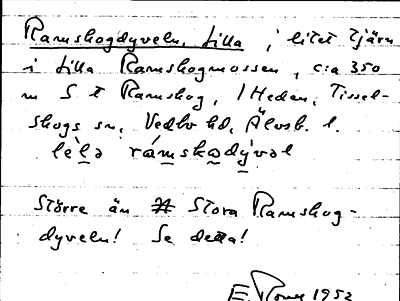 Ramskogdyveln, Lilla, litet tjärn
i Lilla Ramskogmossen, c:a 350
m S t Ramskog, 1 Heden, Tissel-
skogs sn, Vedbo hd, Älvsb. l.
lèlə ràmskədývəl
Större än Stora Ramskog-
dyveln! Se detta!
E. 1952